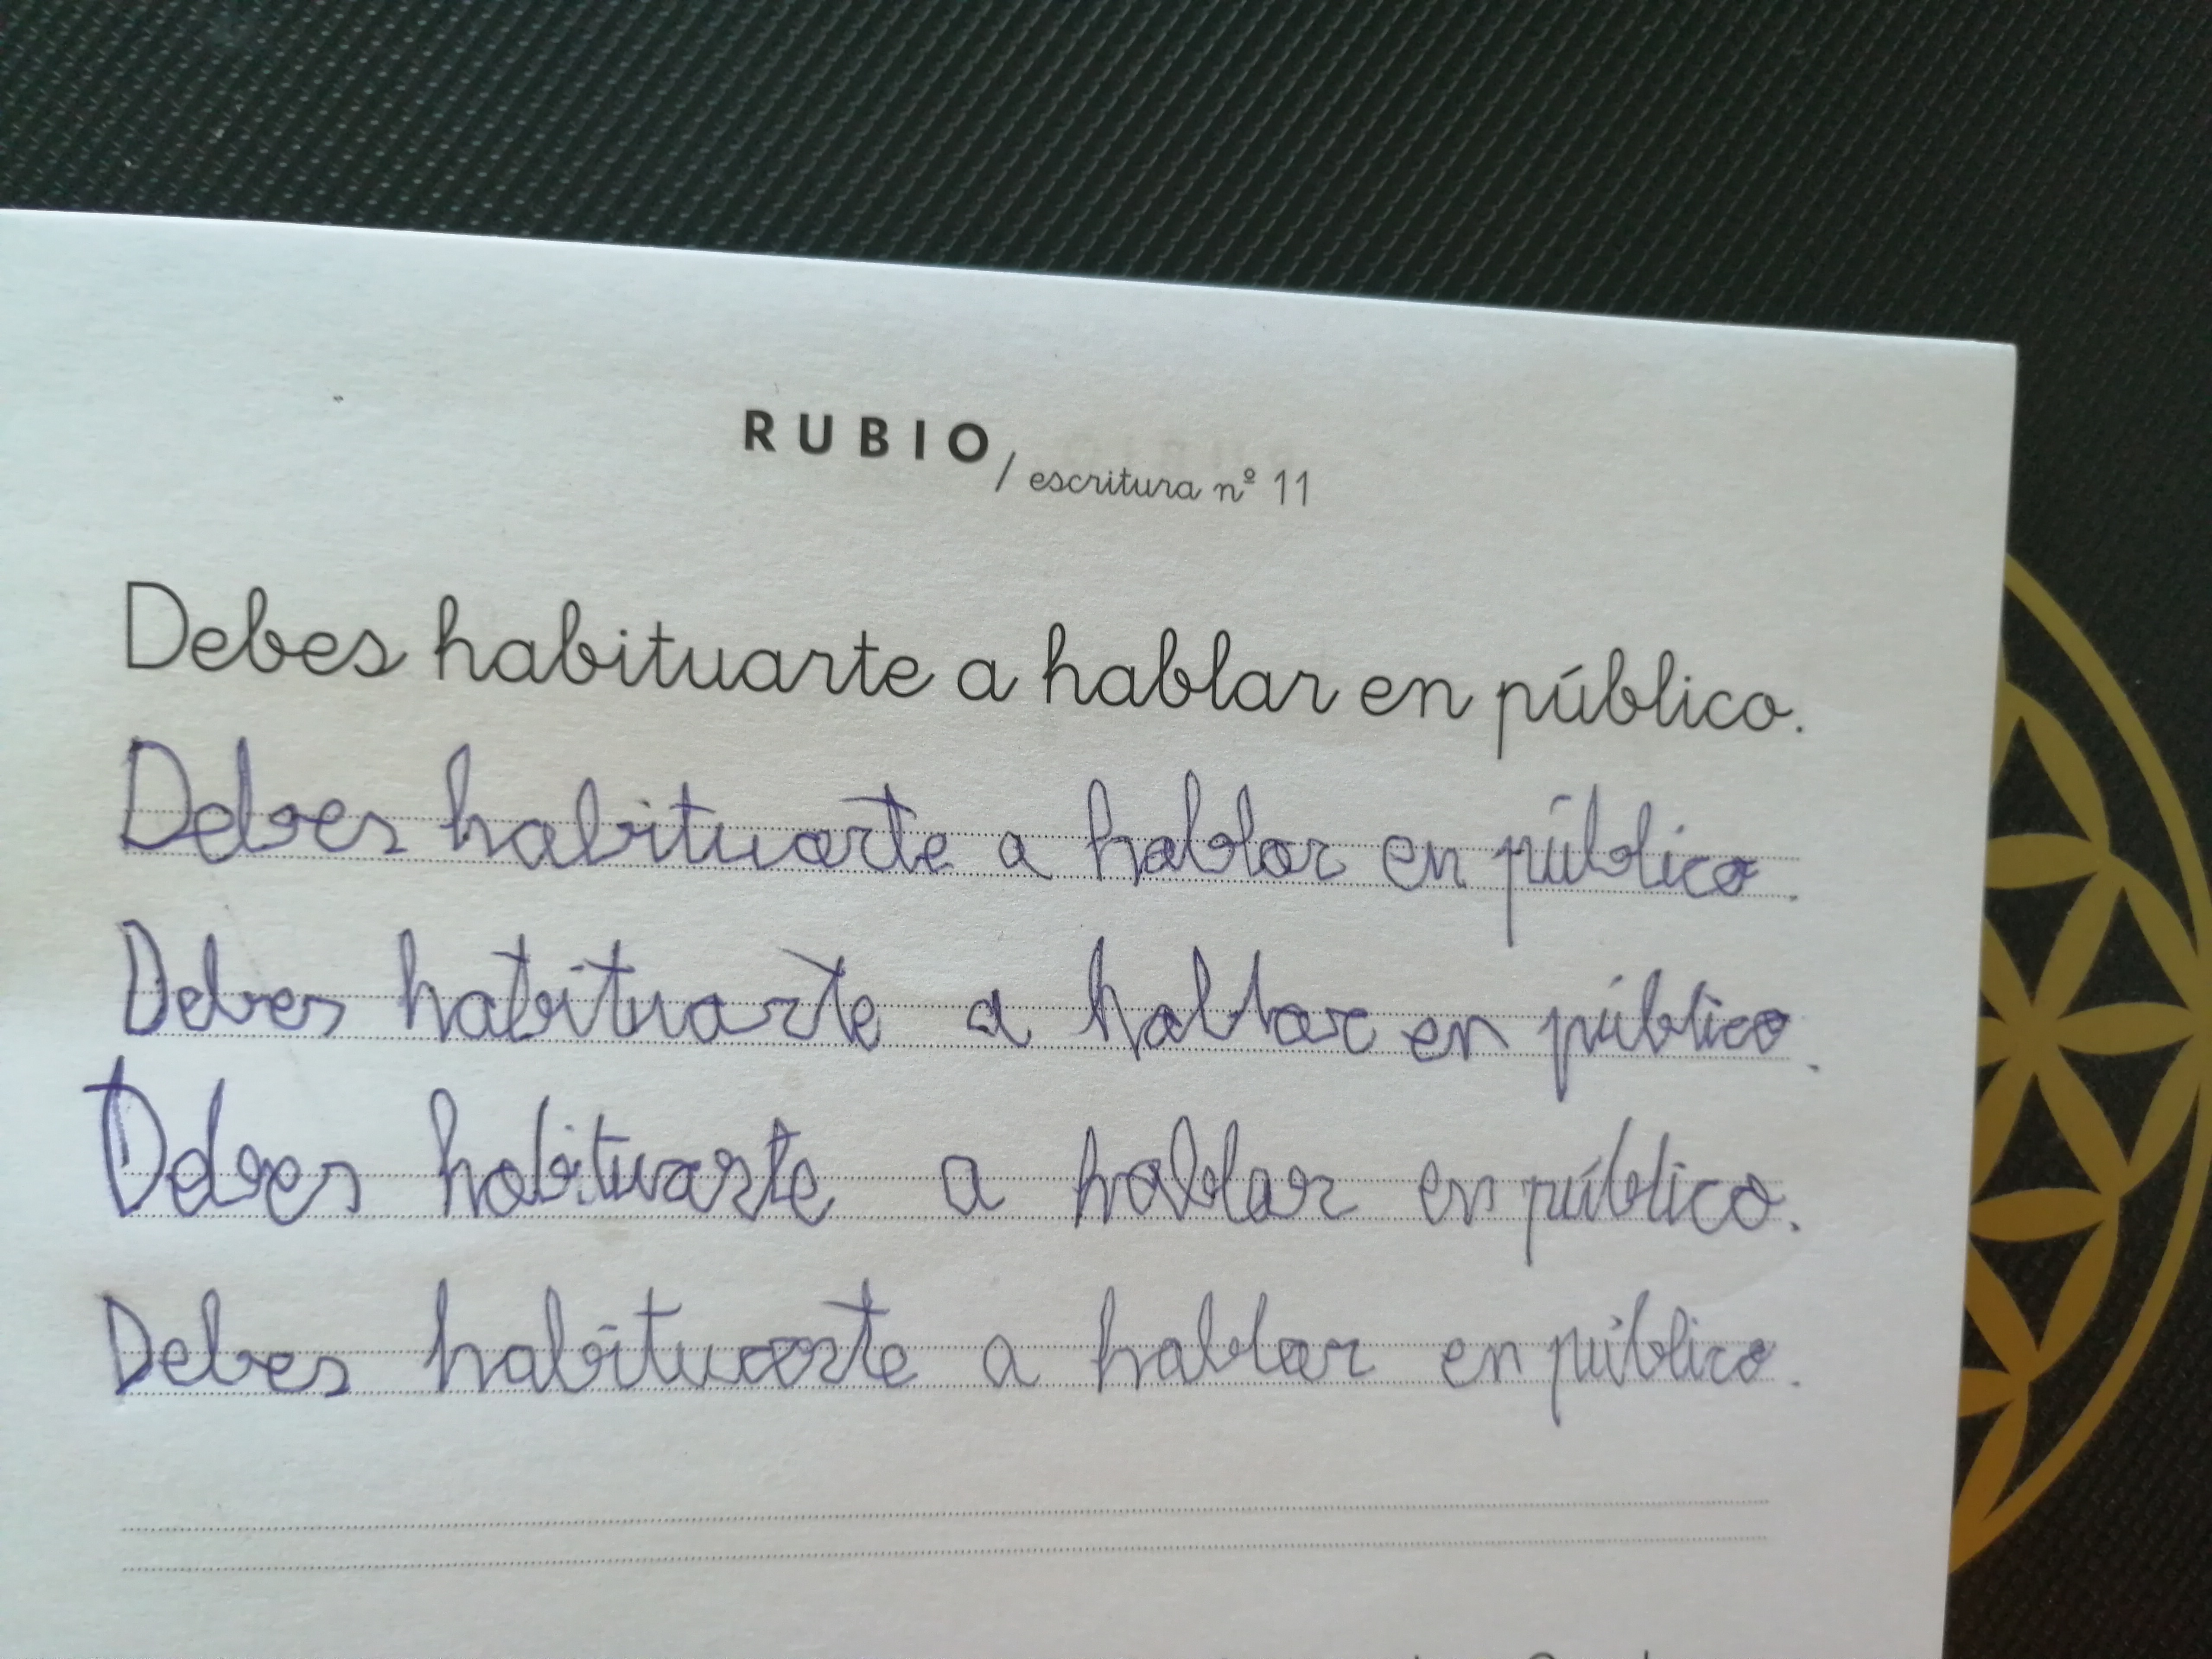 RUBIO / escritura nº 11
Debes habituarte a hablar en público.
Debes habituarte a hablar en público.
Debes habituarte a hablar en público.
Debes habituarte a hablar en público.
Debes habituarte a hablar en público.